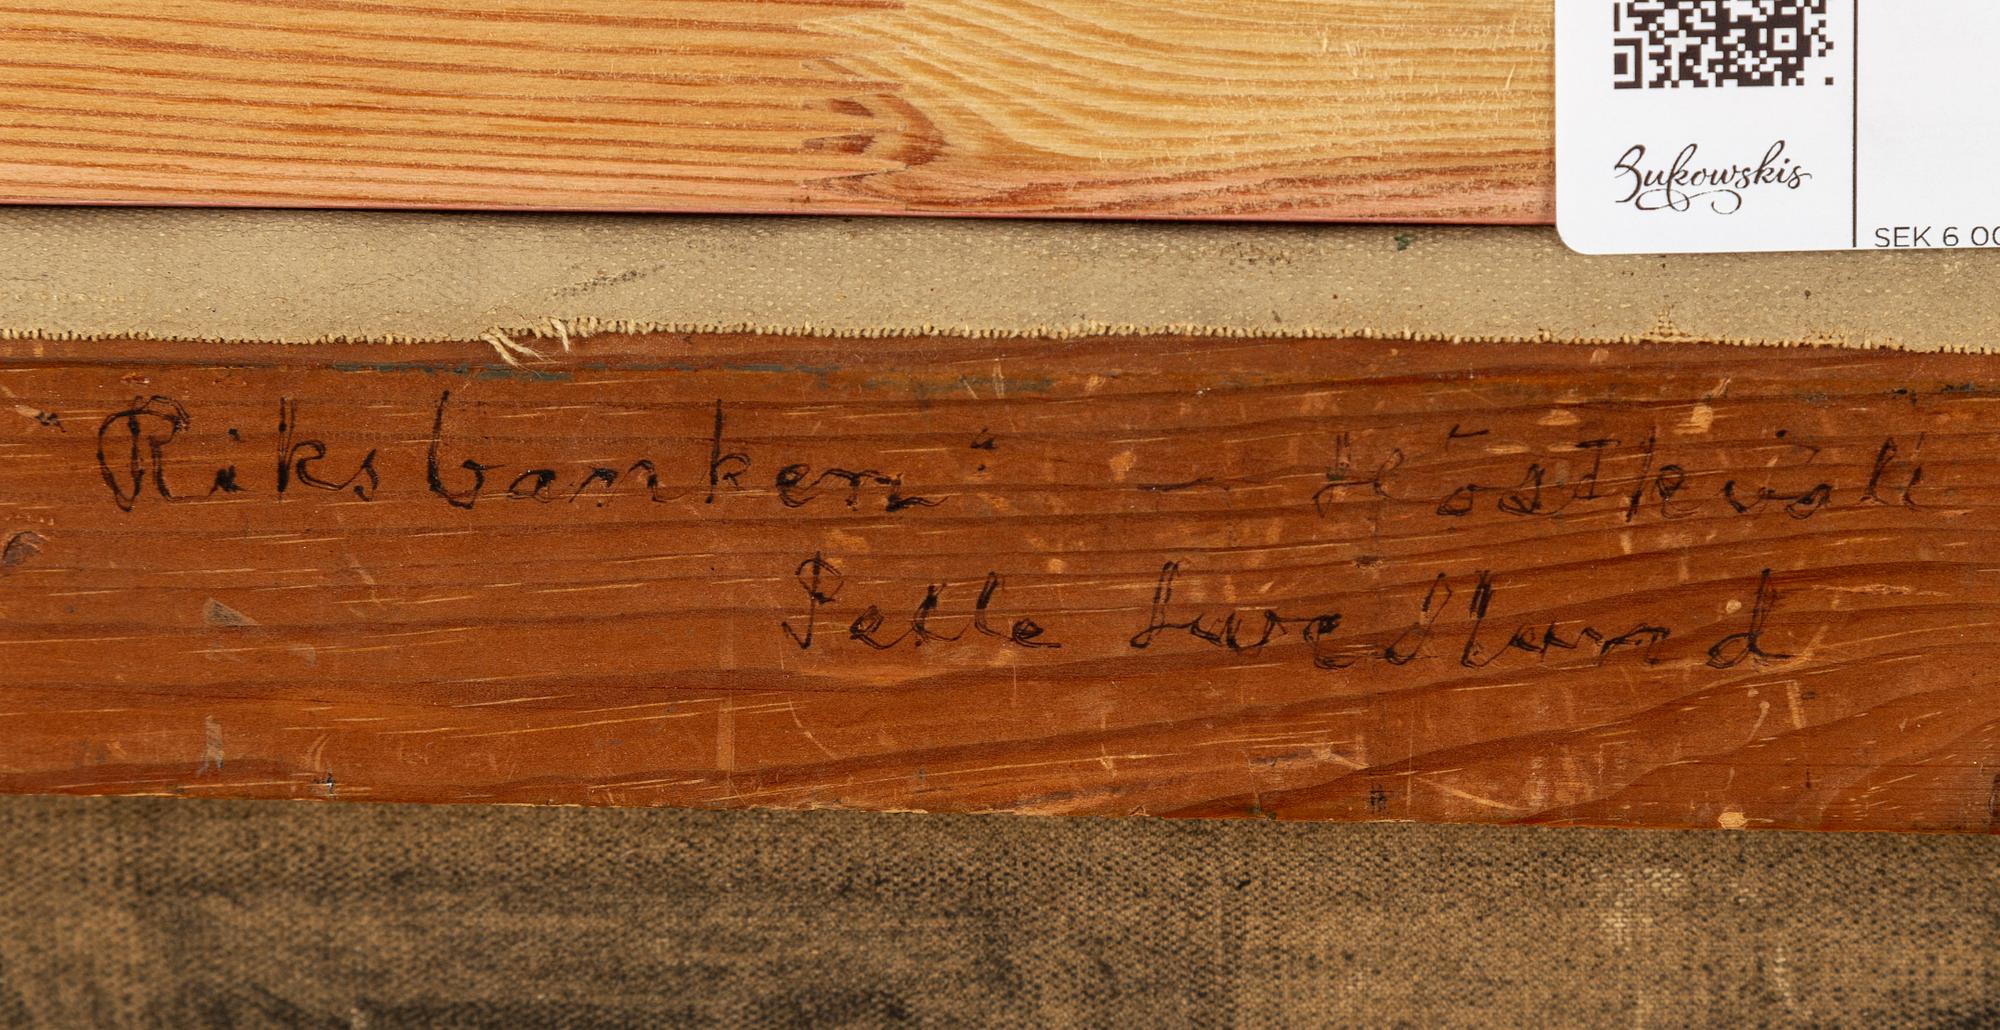 Bukowskis
SEK 6 00
Riksbanken: – Höstkväll
Pelle Swedlund